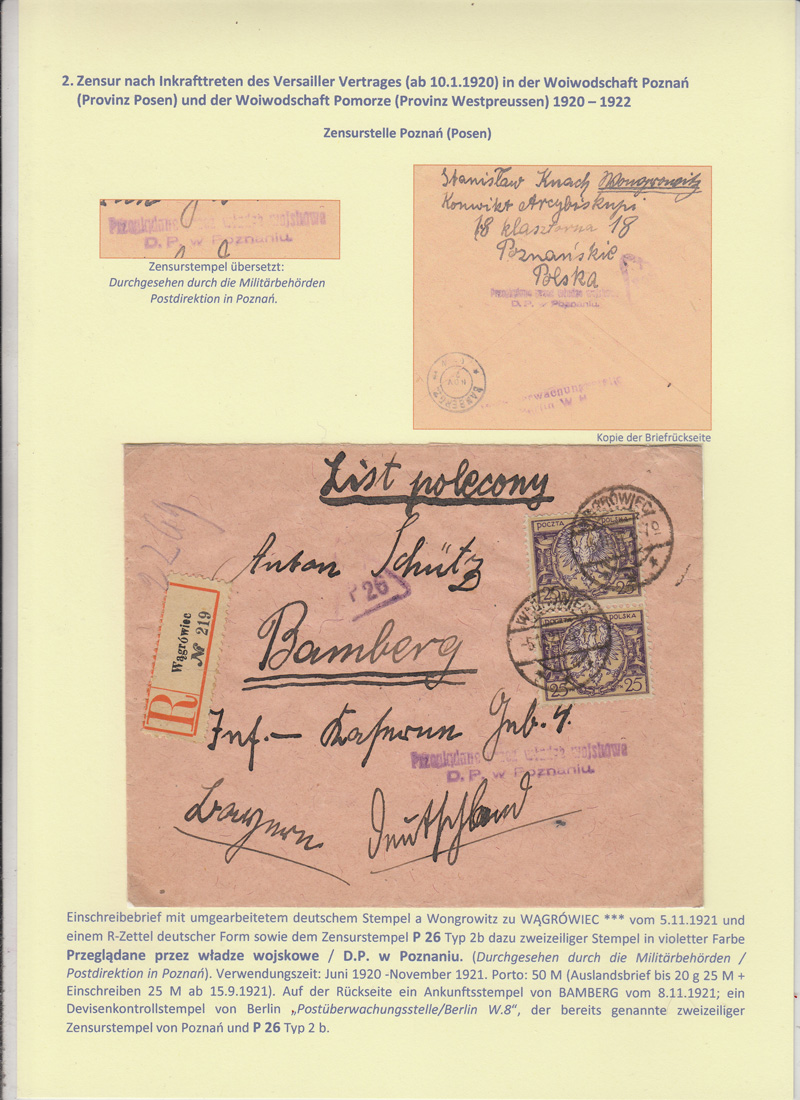 2. Zensur nach Inkrafttreten des Versailler Vertrages (ab 10.1.1920) in der Woiwodschaft Poznań
(Provinz Posen) und der Woiwodschaft Pomorze (Provinz Westpreussen) 1920 – 1922
Zensurstelle Poznań (Posen)
Przeglądane przez władze wojskowe
D. P. w Poznaniu.
Zensurstempel übersetzt:
Durchgesehen durch die Militärbehörden
Postdirektion in Poznań.
Stanisław Knach Wongrowitz
Konwikt Arcybiskupi
18 klasztorna 18
Poznańskie
Polska
Przeglądane przez władze wojskowe
D. P. w Poznaniu.
BAMBERG
Kopie der Briefrückseite
List polecony
Anton Schütz
P 26
Bamberg
Inf.– Kaserne Geb. 4.
Bayern Deutschland
Wągrówiec
№ 219
R
POCZTA POLSKA
25
WĄGRÓWIEC
POCZTA POLSKA
25 25
WĄGRÓWIEC
Przeglądane przez władze wojskowe
D. P. w Poznaniu.
Einschreibebrief mit umgearbeitetem deutschem Stempel a Wongrowitz zu WĄGRÓWIEC *** vom 5.11.1921 und
einem R-Zettel deutscher Form sowie dem Zensurstempel P 26 Typ 2b dazu zweizeiliger Stempel in violetter Farbe
Przeglądane przez władze wojskowe / D.P. w Poznaniu. (Durchgesehen durch die Militärbehörden /
Postdirektion in Poznań). Verwendungszeit: Juni 1920 -November 1921. Porto: 50 M (Auslandsbrief bis 20 g 25 M +
Einschreiben 25 M ab 15.9.1921). Auf der Rückseite ein Ankunftsstempel von BAMBERG vom 8.11.1921; ein
Devisenkontrollstempel von Berlin „Postüberwachungsstelle/Berlin W.8“, der bereits genannte zweizeiliger
Zensurstempel von Poznań und P 26 Typ 2 b.